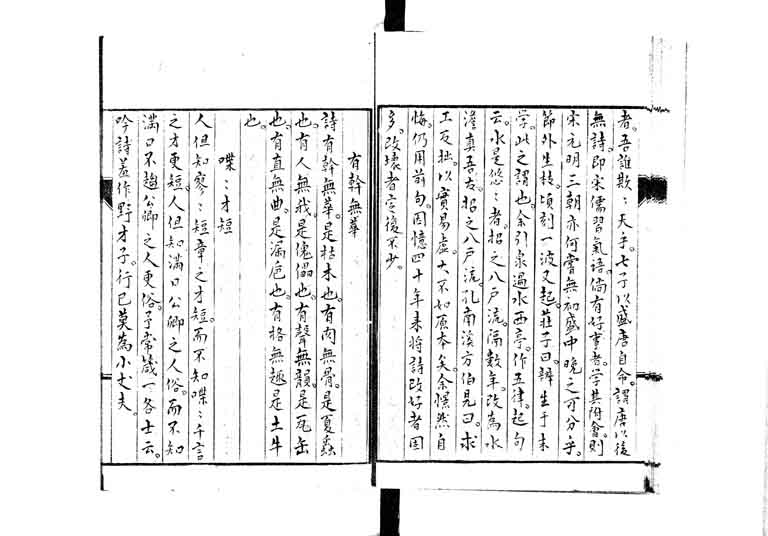 者。吾誰欺：天乎。七子以盛唐自命。謂唐以後
無詩。即宋儒習氣語。倘有好事者。学其附會。則
宋元明三朝亦何嘗無初盛中晚之可分乎。
節外生枝。頃刻一波又起。莊子曰。辨生于末
学。此之謂也。余引泉過水西亭。作五律。起句
云。水是悠：者。招之入戸流。隔数年。改為水
澹真吾友。招之入戸流。孔南溪方伯見曰。求
工反拙。以實易虚。大不如原本矣。余憬然自
悔。仍用前句。因憶四十年来将詩改好者固
多。改壊者定復不少。
有幹無華
詩有幹無華。是枯木也。有肉無骨。是夏蟲
也。有人無我。是傀儡也。有聲無韻。是瓦缶
也。有直無曲。是漏卮也。有格無趣。是土牛
也。
喋：才短
人但知寥：短章之才短。而不知喋：千言
之才更短。人但知満口公卿之人俗。而不知
満口不趨公卿之人更俗。予常箴一名士云。
吟詩羞作野才子。行已莫為小丈夫。